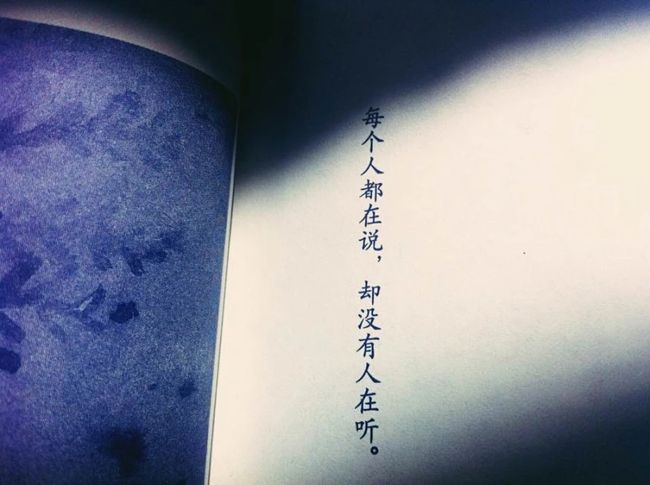 每个人都在说，却没有人在听。